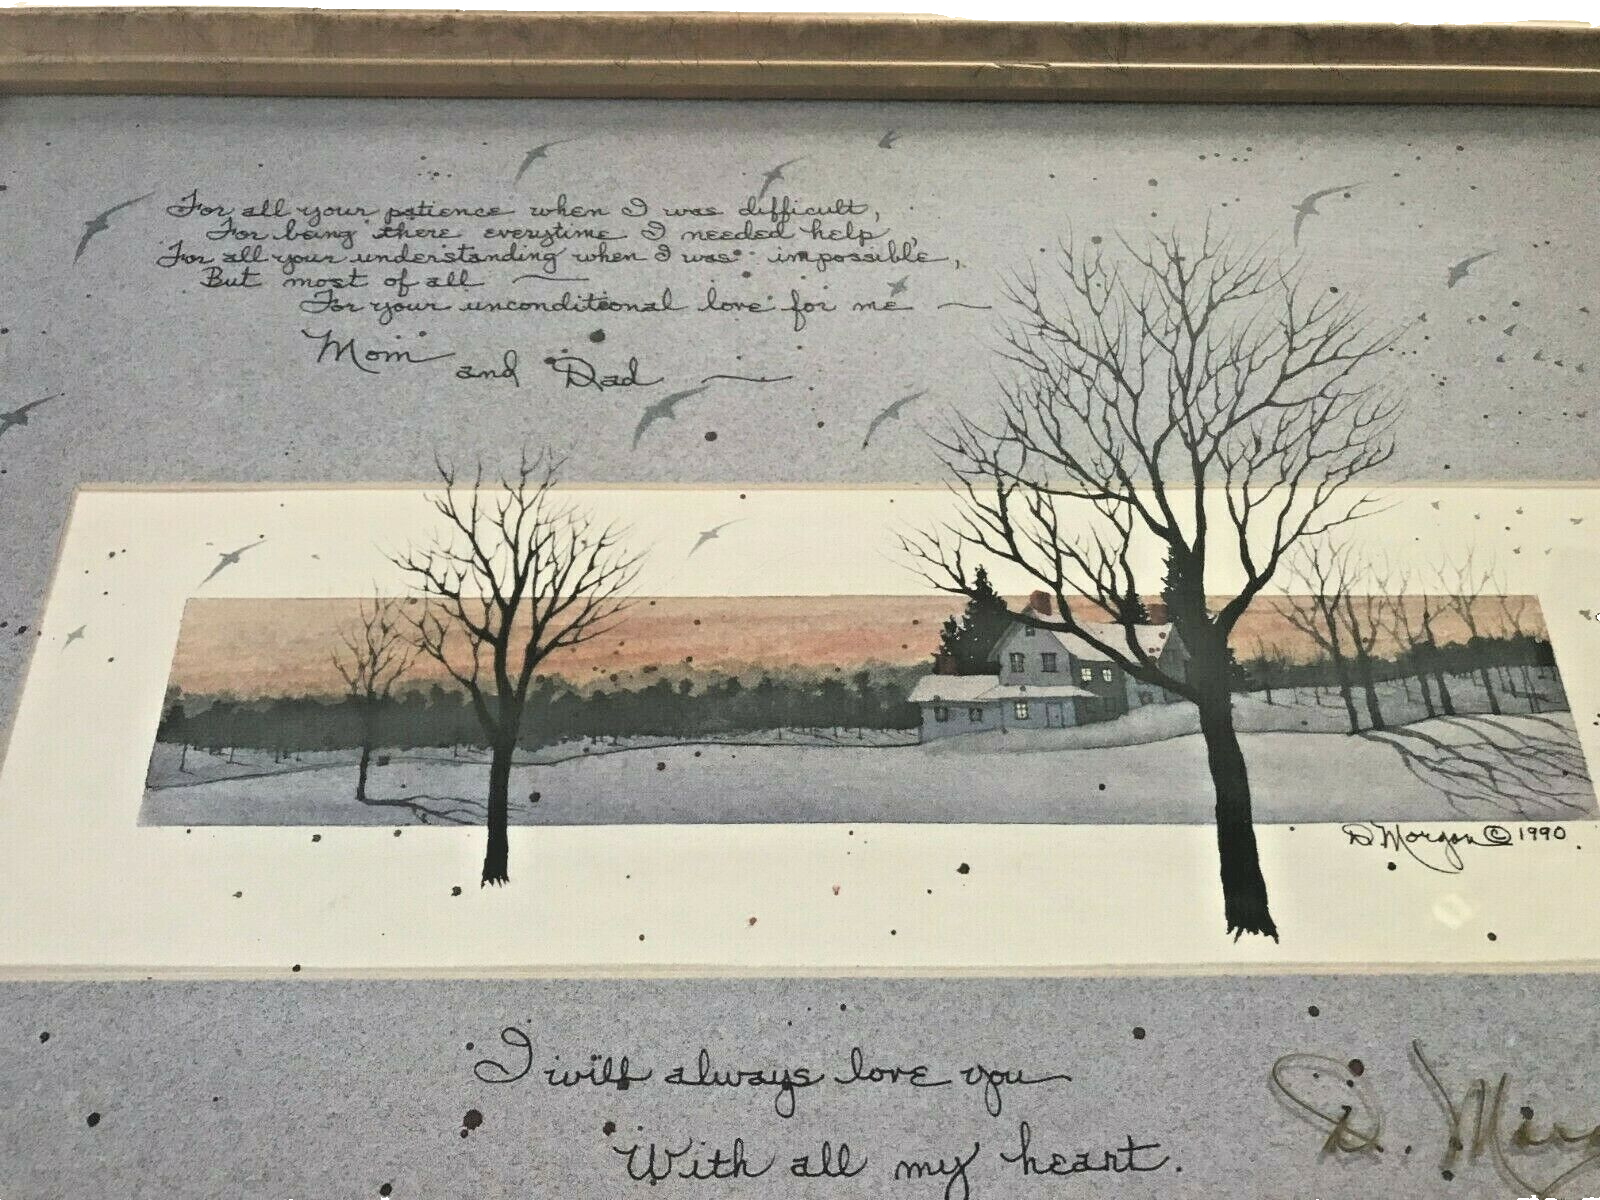 For all your patience when I was difficult,
For being there everytime I needed help,
For all your understanding when I was impossible,
But most of all —
For your unconditional love for me —
Mom and Dad —
D Morgan © 1990
I will always love you
With all my heart.
D. Morg